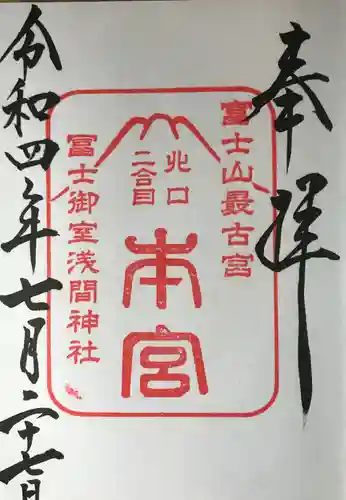 奉拝
冨士山最古宮
北口
二合目
本宮
冨士御室浅間神社
令和四年七月二十七日